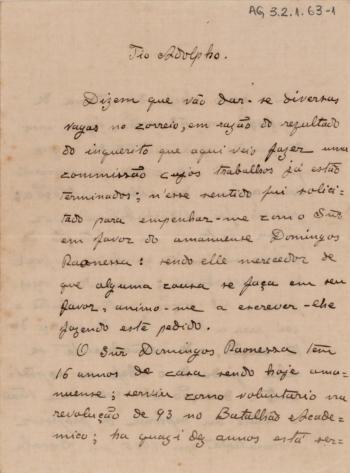 AG 3.2.1.63-1
Tio Adolpho.
Dizem que vão dar-se diversas
vagas no correio, em razão do rezultado
do inquerito que aqui veio fazer uma
commissão cujos trabalhos já estão
terminados; n'esse sentido fui solici-
tado para empenhar-me com o Snr
em favor do amanuense Domingos
Paonessa: sendo elle merecedor de
que alguma cousa se faça em seu
favor, animo-me a escrever-lhe
fazendo este pedido.
O Snr Domingos Paonessa tem
16 annos de casa sendo hoje ama-
nuense; serviu como voluntario na
revolução de 93 no Batalhão Acade-
mico; ha quazi dez annos está ser-